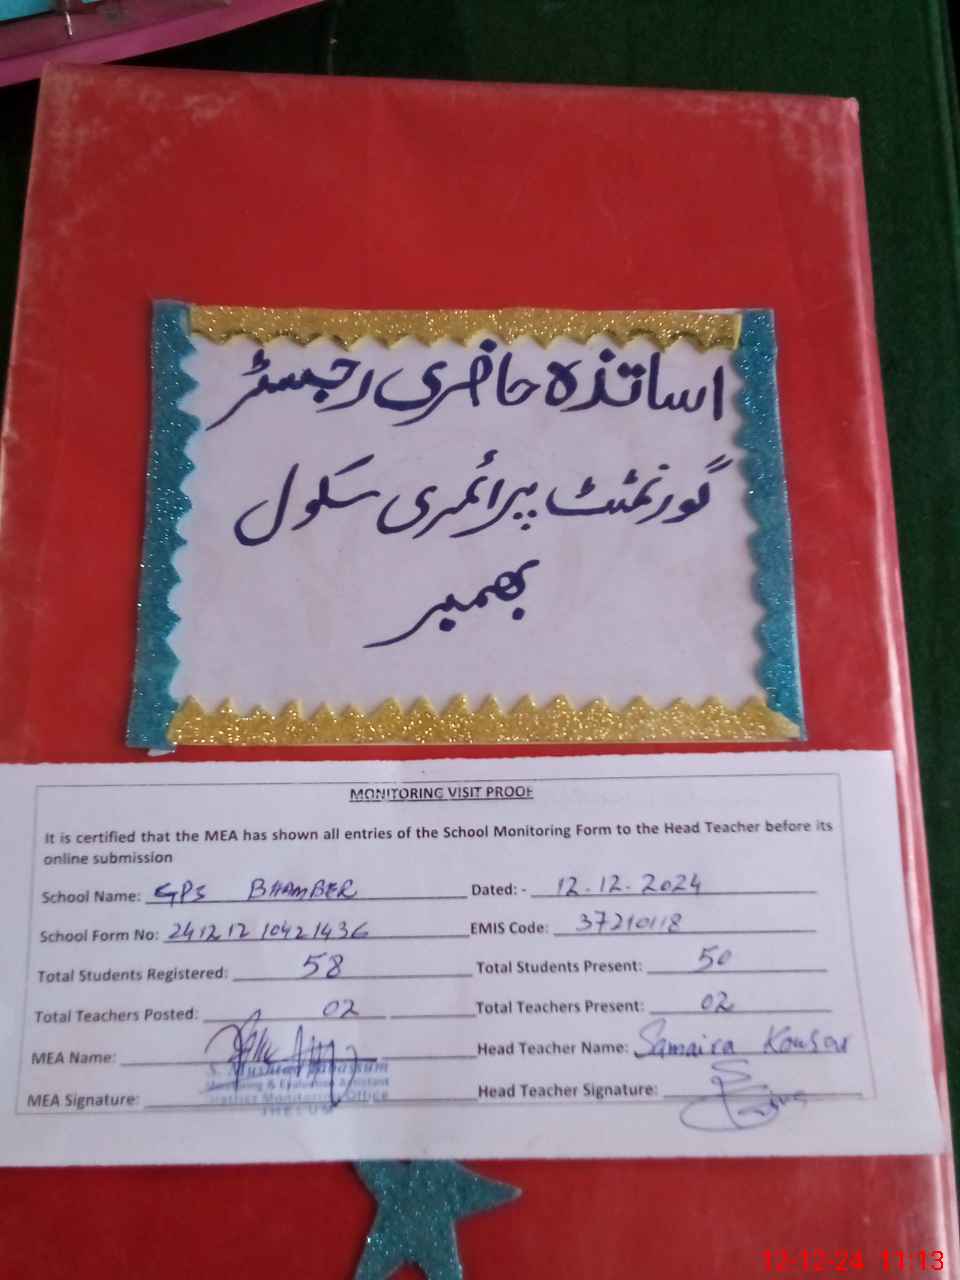 اساتذہ حاضری رجسٹر
گورنمنٹ پرائمری سکول
بھمبر
MONITORING VISIT PROOF
It is certified that the MEA has shown all entries of the School Monitoring Form to the Head Teacher before its
online submission
School Name: GPS BHAMBER Dated: - 12.12.2024
School Form No: 24121210421436 EMIS Code: 37210118
Total Students Registered: 58 Total Students Present: 50
Total Teachers Posted: 02 Total Teachers Present: 02
MEA Name: Head Teacher Name: Samaira Kousar
Monitoring & Evaluation Assistant
MEA Signature: Head Teacher Signature:
District Monitoring Office
JHELUM
12-12-24 11:13